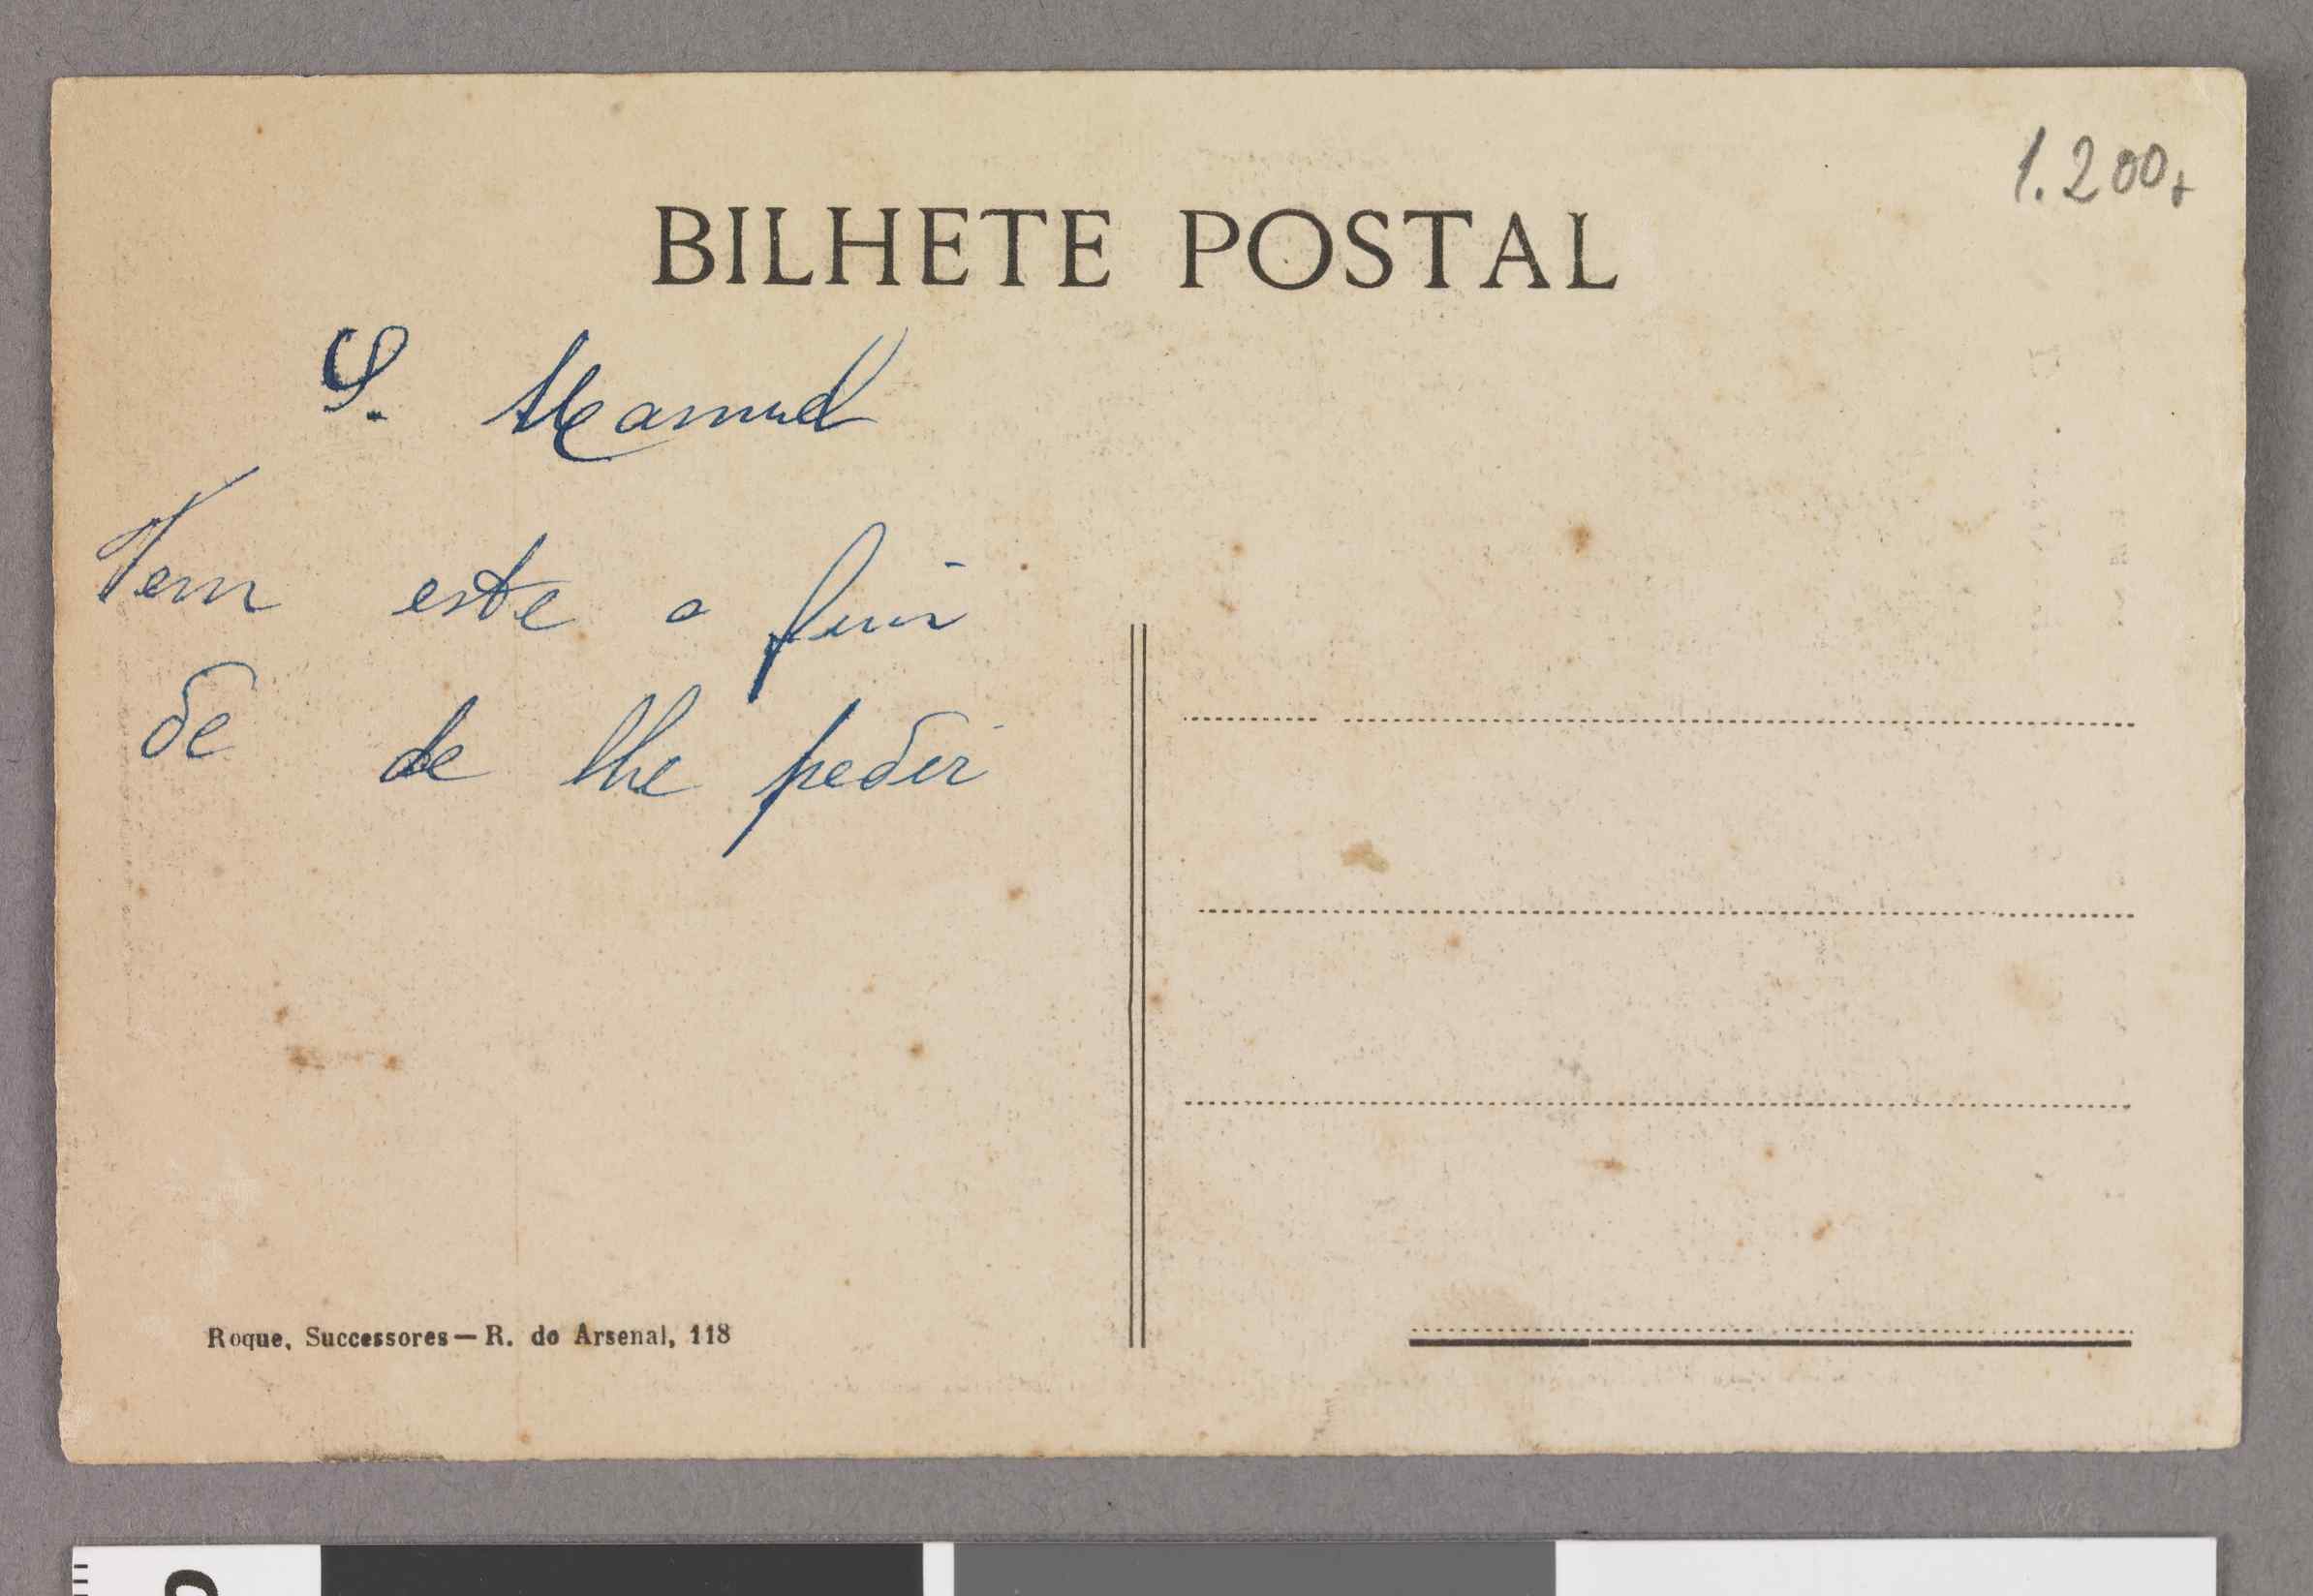 1.200,
BILHETE POSTAL
S. Manuel
Vem este a fim
de de lhe pedir
Roque, Successores — R. do Arsenal, 118